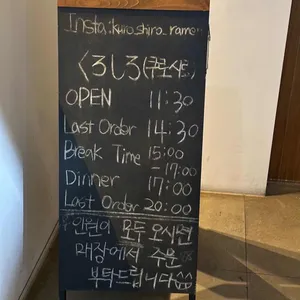 Insta: kuro_shiro_ramen
くろしろ(쿠로시로)
OPEN 11:30
Last Order 14:30
Break Time 15:00
- 17:00
Dinner 17:00
Last Order 20:00
인원이 모두 오시면
매장에서 주문
부탁드립니다